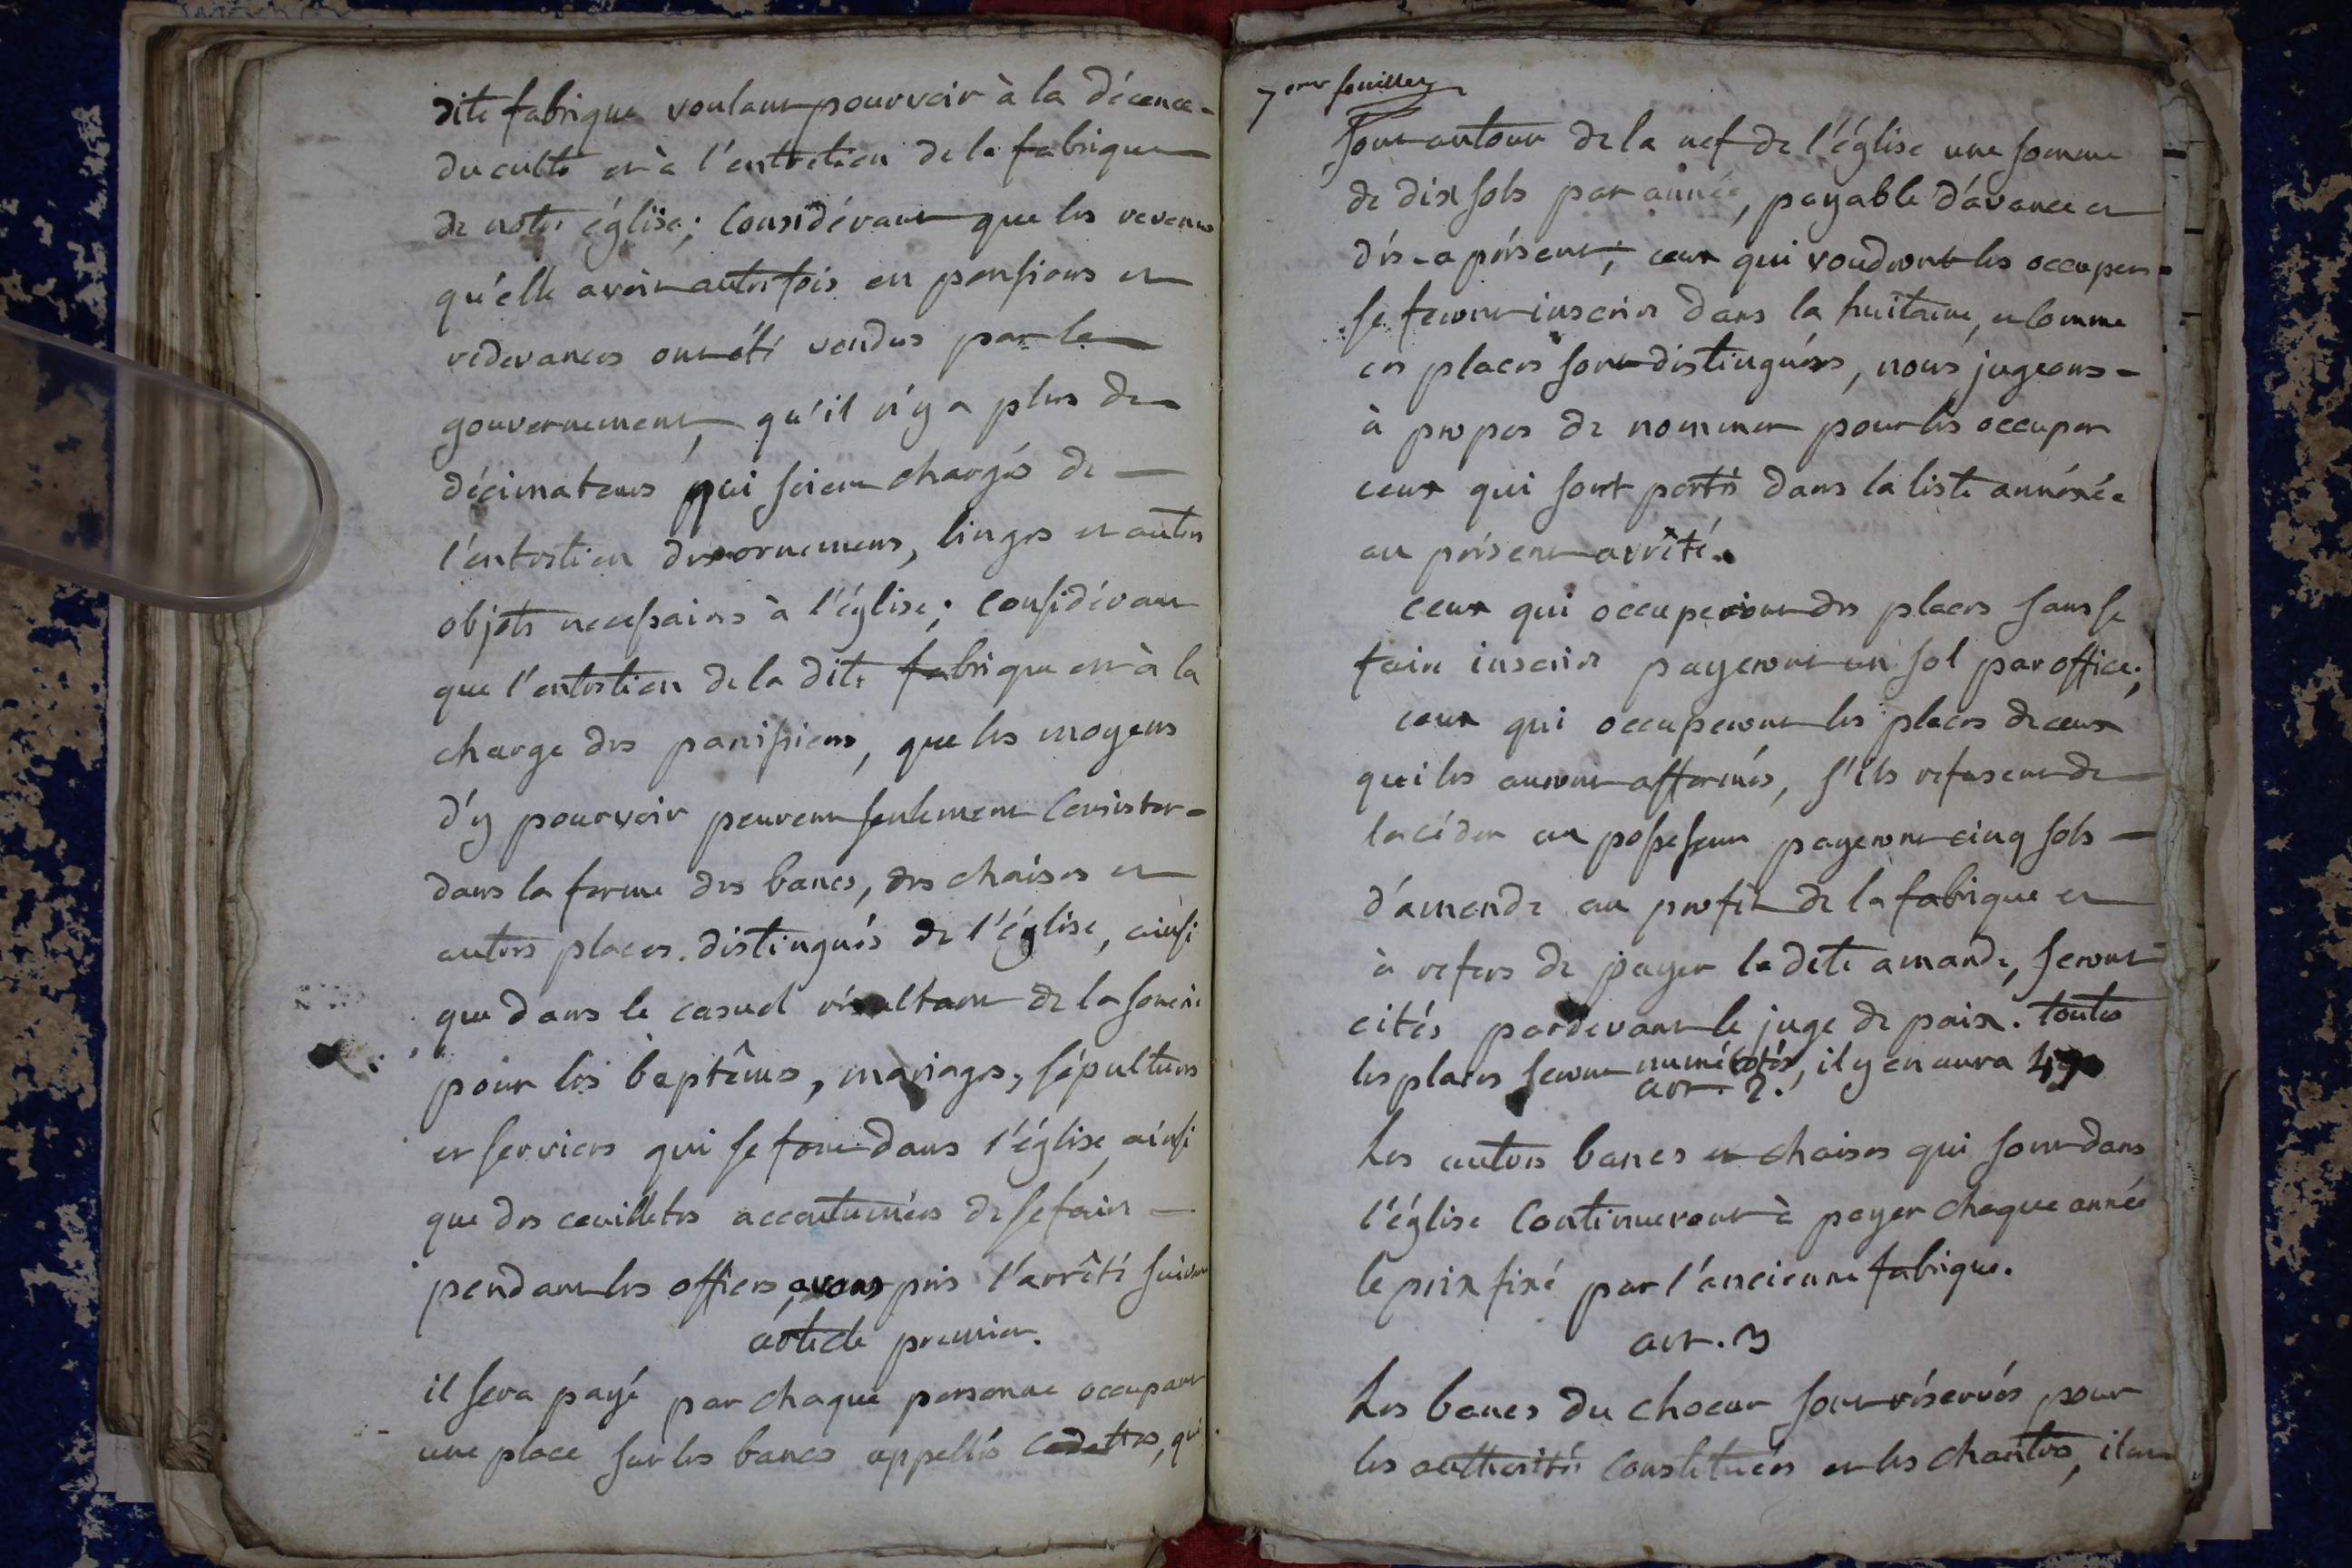 dite fabrique voulant pourvoir à la décence
du culte et à l'entretien de la fabrique
de notre église; Considérant que les revenus
qu'elle avoit autrefois en pensions et
redevances ont été vendus par le
gouvernement, qu'il n'y a plus de
décimateurs qui soient chargés de
l'entretien des ornemens, linges et autres
objets necessaires à l'église; Considérant
que l'entretien de la dite fabrique est à la
charge des paroissiens, que les moyens
d'y pourvoir peuvent seulement Consister
dans la ferme des bancs, des chaises et
autres places distingués de l'église, ainsi
que dans le casuel résultant de la sonerie
pour les baptêmes, mariages, sépultures
et services qui se font dans l'église, ainsi
que des ceuilletes accoutumées de se faire
pendant les offices, avons pris l'arrêté suivant
article premier.
il sera payé par chaque personne occupant
une place sur les bancs appellés Cadettes, qui
7eme feuillet
sont autour de la nef de l'église une somme
de dix sols par année, payable d'avance et
dès-a présent; ceux qui voudront les occuper
se feront inscrire dans la huitaine, et Comme
ces places sont distinguées, nous jugeons
à propos de nommer pour les occuper
ceux qui sont portés dans la liste annéxée
au présent arrêté.
ceux qui occuperont des places sans se
faire inscrire payeront un sol par office;
ceux qui occuperont les places de ceux
qui les auront affermés, s'ils refusent de
la céder au possesseur payeront cinq sols
d'amende au profit de la fabrique et
à refus de payer la dite amande, seront
cités pardevant le juge de paix. toutes
les places seront numérotés, il y en aura
art. 2.
Les autres bancs et chaises qui sont dans
l'église Continueront à payer chaque année
le prix fixé par l'ancienne fabrique.
art. 3
Les bancs du choeur sont réservés pour
les authorités Constituées et les chantres, il en